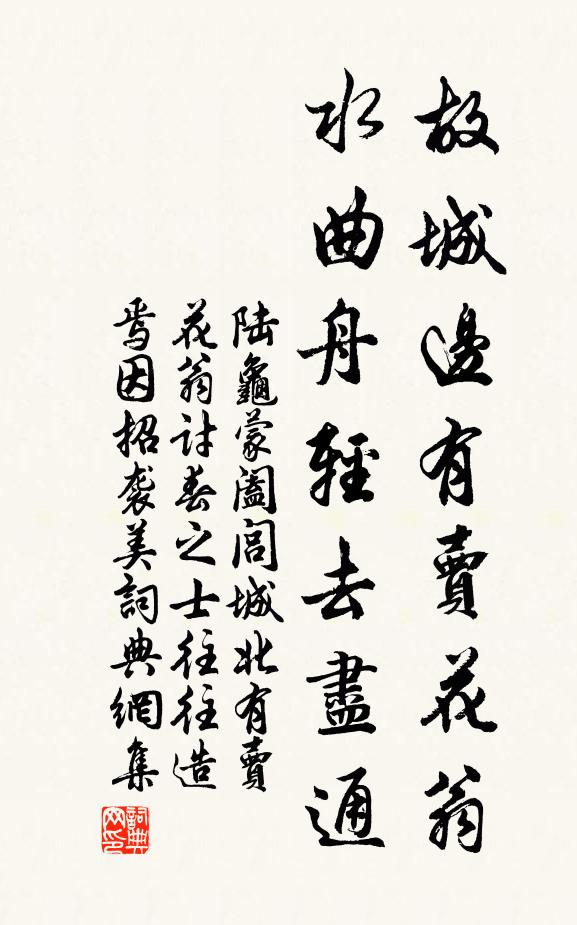 故城邊有賣花翁
水曲舟輕去盡通
陆龜蒙闔閭城北有賣
花翁討春之士往往造
焉因招袭美詞典網集
詞典
网印